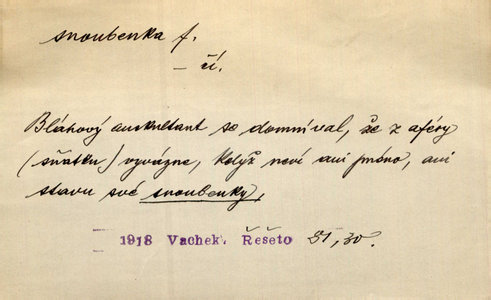 snoubenka f.
– čí.
Bláhový auskultant se domníval, že z aféry
(sňatku) vyvázne, když neví ani jméno, ani
stavu své snoubenky.
1918 Vachek. Řešeto 21, 30.